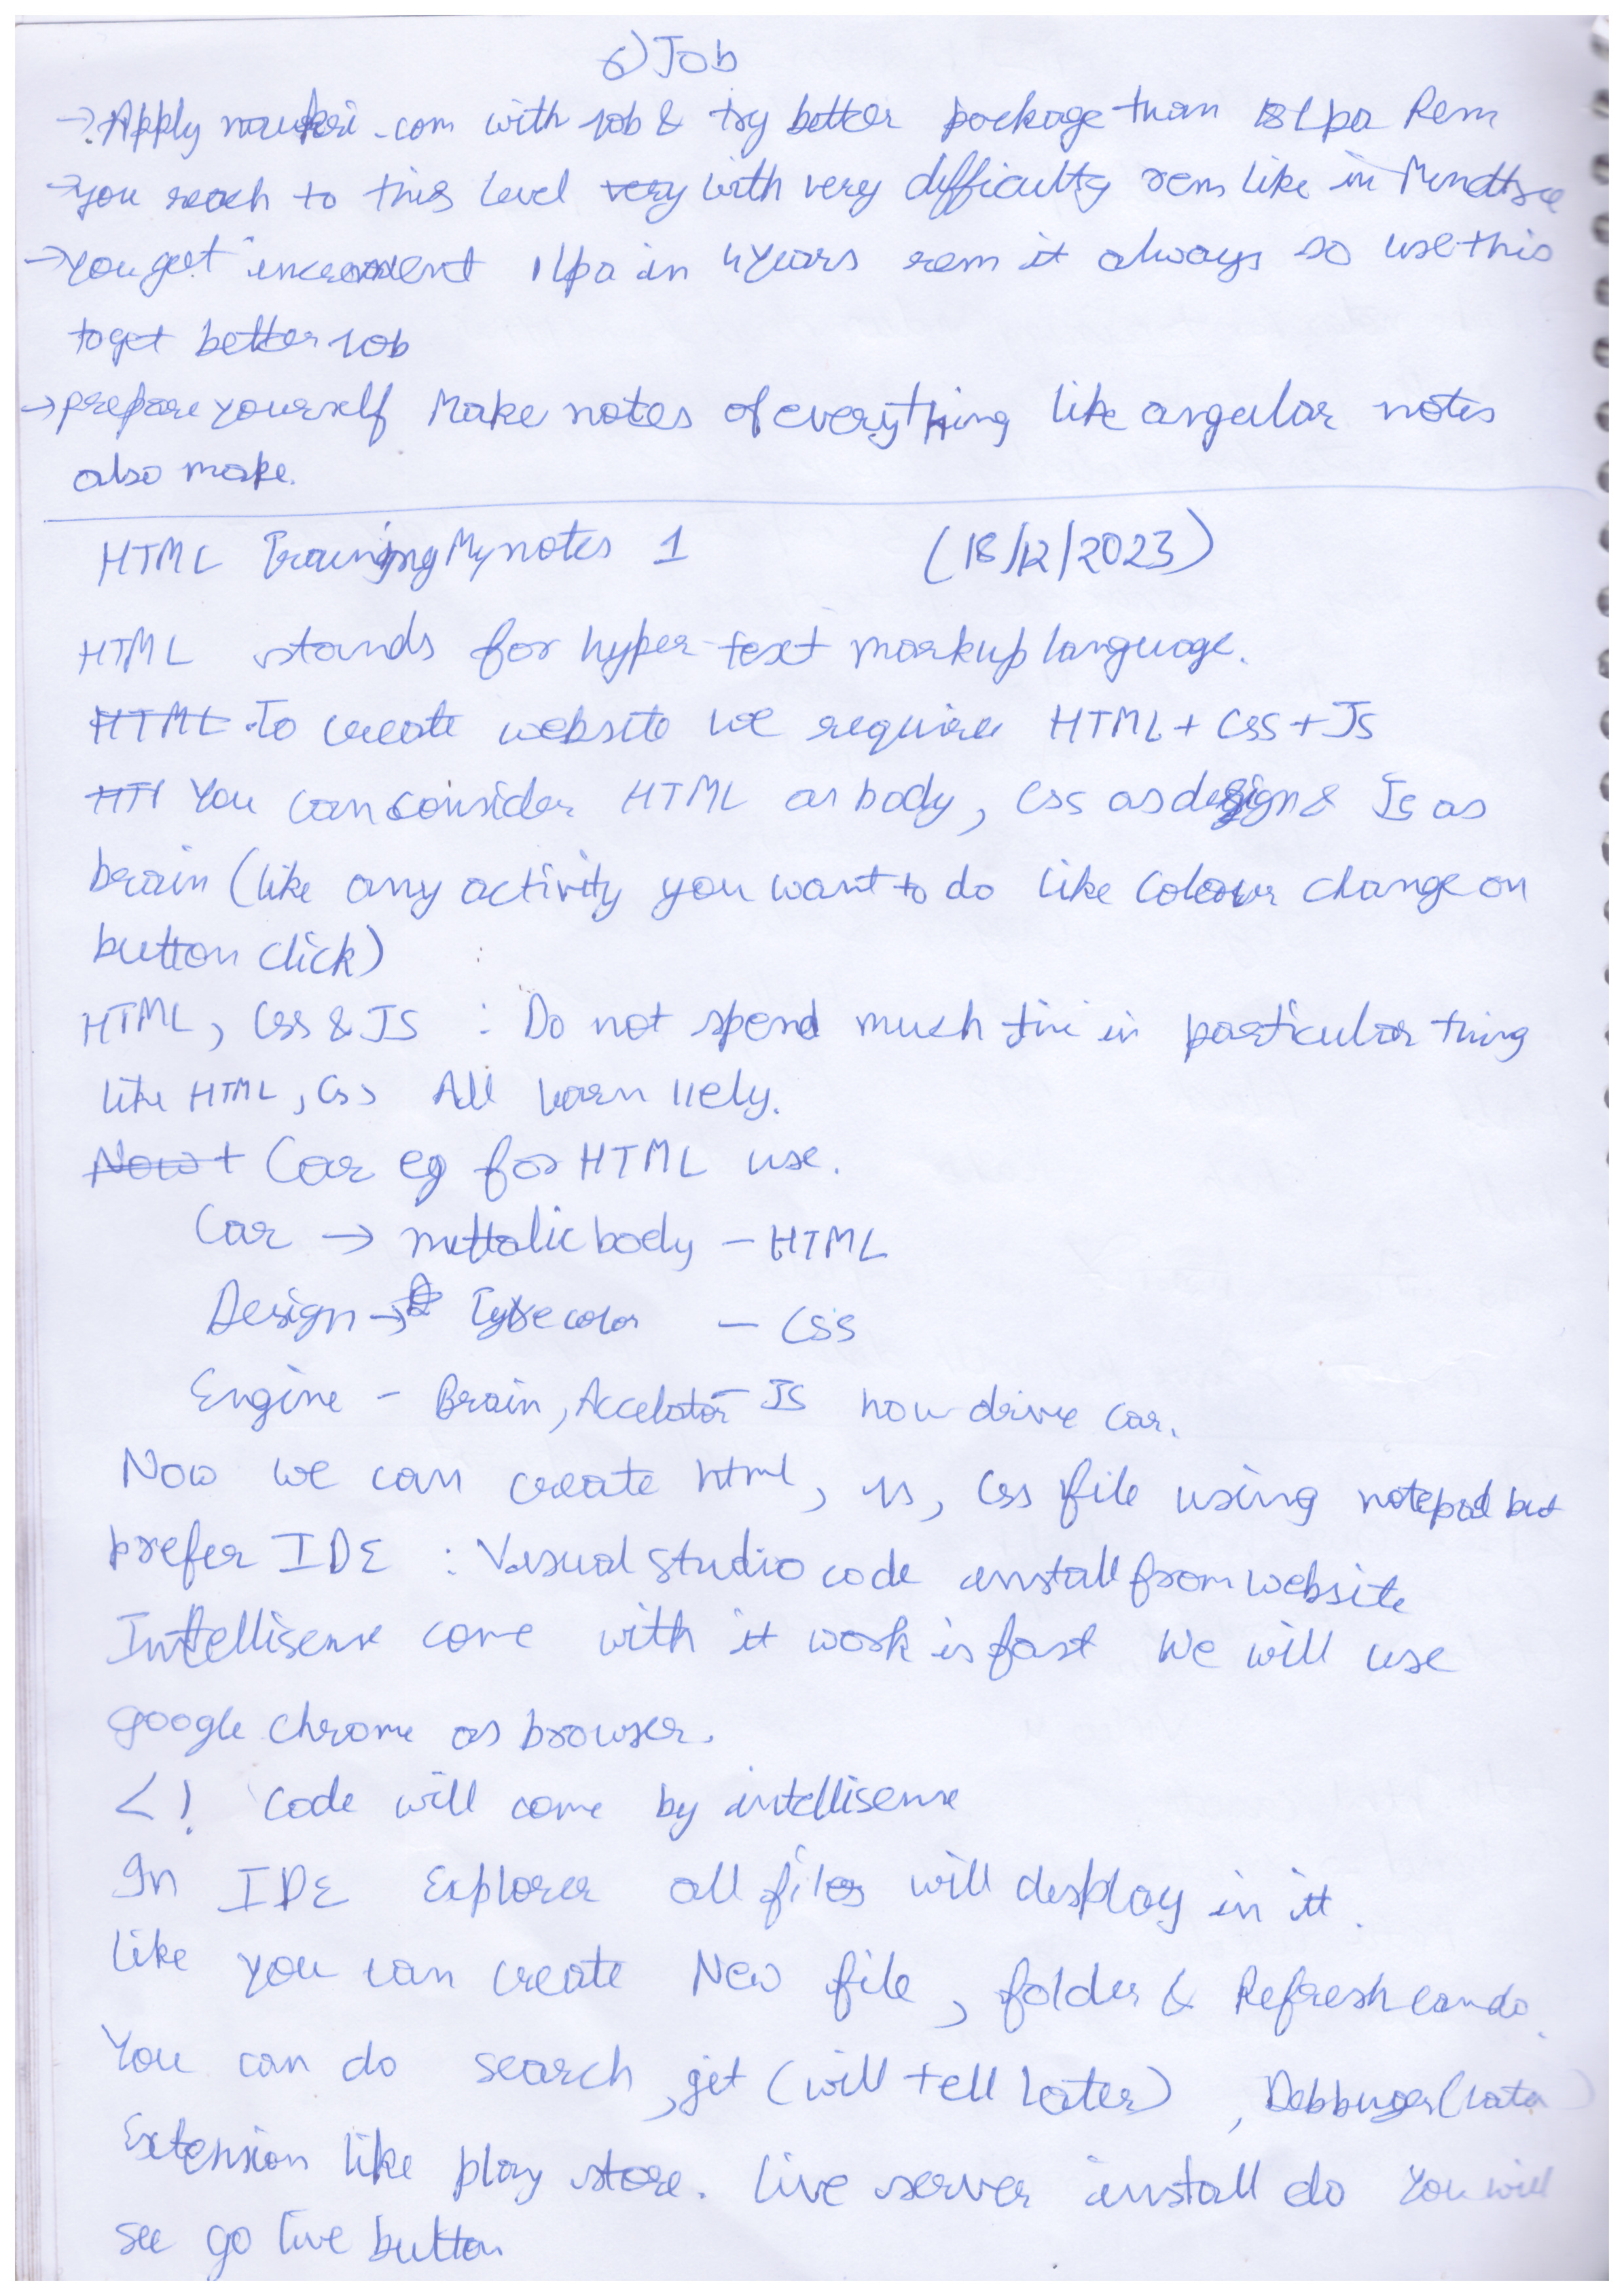 6) Job
→ Apply naukri.com with job & try better package than 8 Lpa Rem
→ you reach to this level very with very difficulty rem like in Mindtree
→ you get increment 1 lpa in 4 years rem it always so use this
to get better job
→ prepare yourself Make notes of everything like angular notes
also make.
HTML Training My notes 1 (18/12/2023)
HTML stands for hyper text markup language.
HTML To create website we require HTML + CSS + JS
HTM You can consider HTML as body, CSS as design & JS as
brain (like any activity you want to do like colour change on
button click)
HTML, CSS & JS : Do not spend much time in particular thing
like HTML, CSS All learn llely.
Now t Car eg for HTML use.
Car → mettalic body - HTML
Design → Tyre color - CSS
Engine - Brain, Accelator - JS how drive car.
Now we can create html, js, css file using notepad but
prefer IDE : Visual studio code install from website
Intellisense come with it work is fast We will use
google chrome as browser.
<! code will come by intellisense
In IDE Explorer all files will display in it.
like you can create New file, folder & Refresh can do.
You can do search, git (will tell later), Debbuger (later)
Extension like play store. Live server install do You will
see go live button